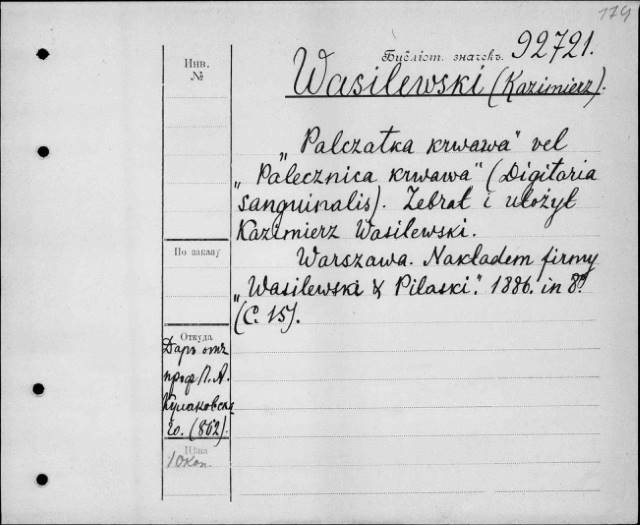 174
Библіот. значекъ. 92721.
Wasilewski (Kazimierz).
Инв.
№
„Palczatka krwawa" vel
„Palecznica krwawa" (Digitaria
sanguinalis). Zebrał i ułożył
Kazimierz Wasilewski.
По заказу
Warszawa. Nakładem firmy
„Wasilewski & Pilaski". 1886. in 8º.
(C. 15).
Откуда
Даръ отъ
проф. П. А.
Кулаковска
го. (862).
Цѣна
10 коп.